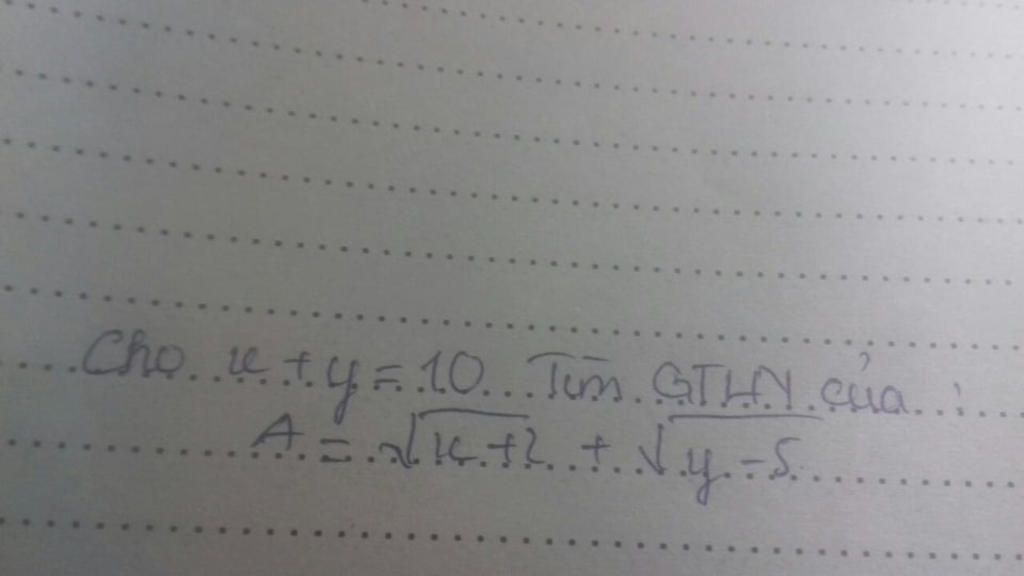 Cho x + y = 10 Tìm GTLN của :
A = √x+2 + √y-5